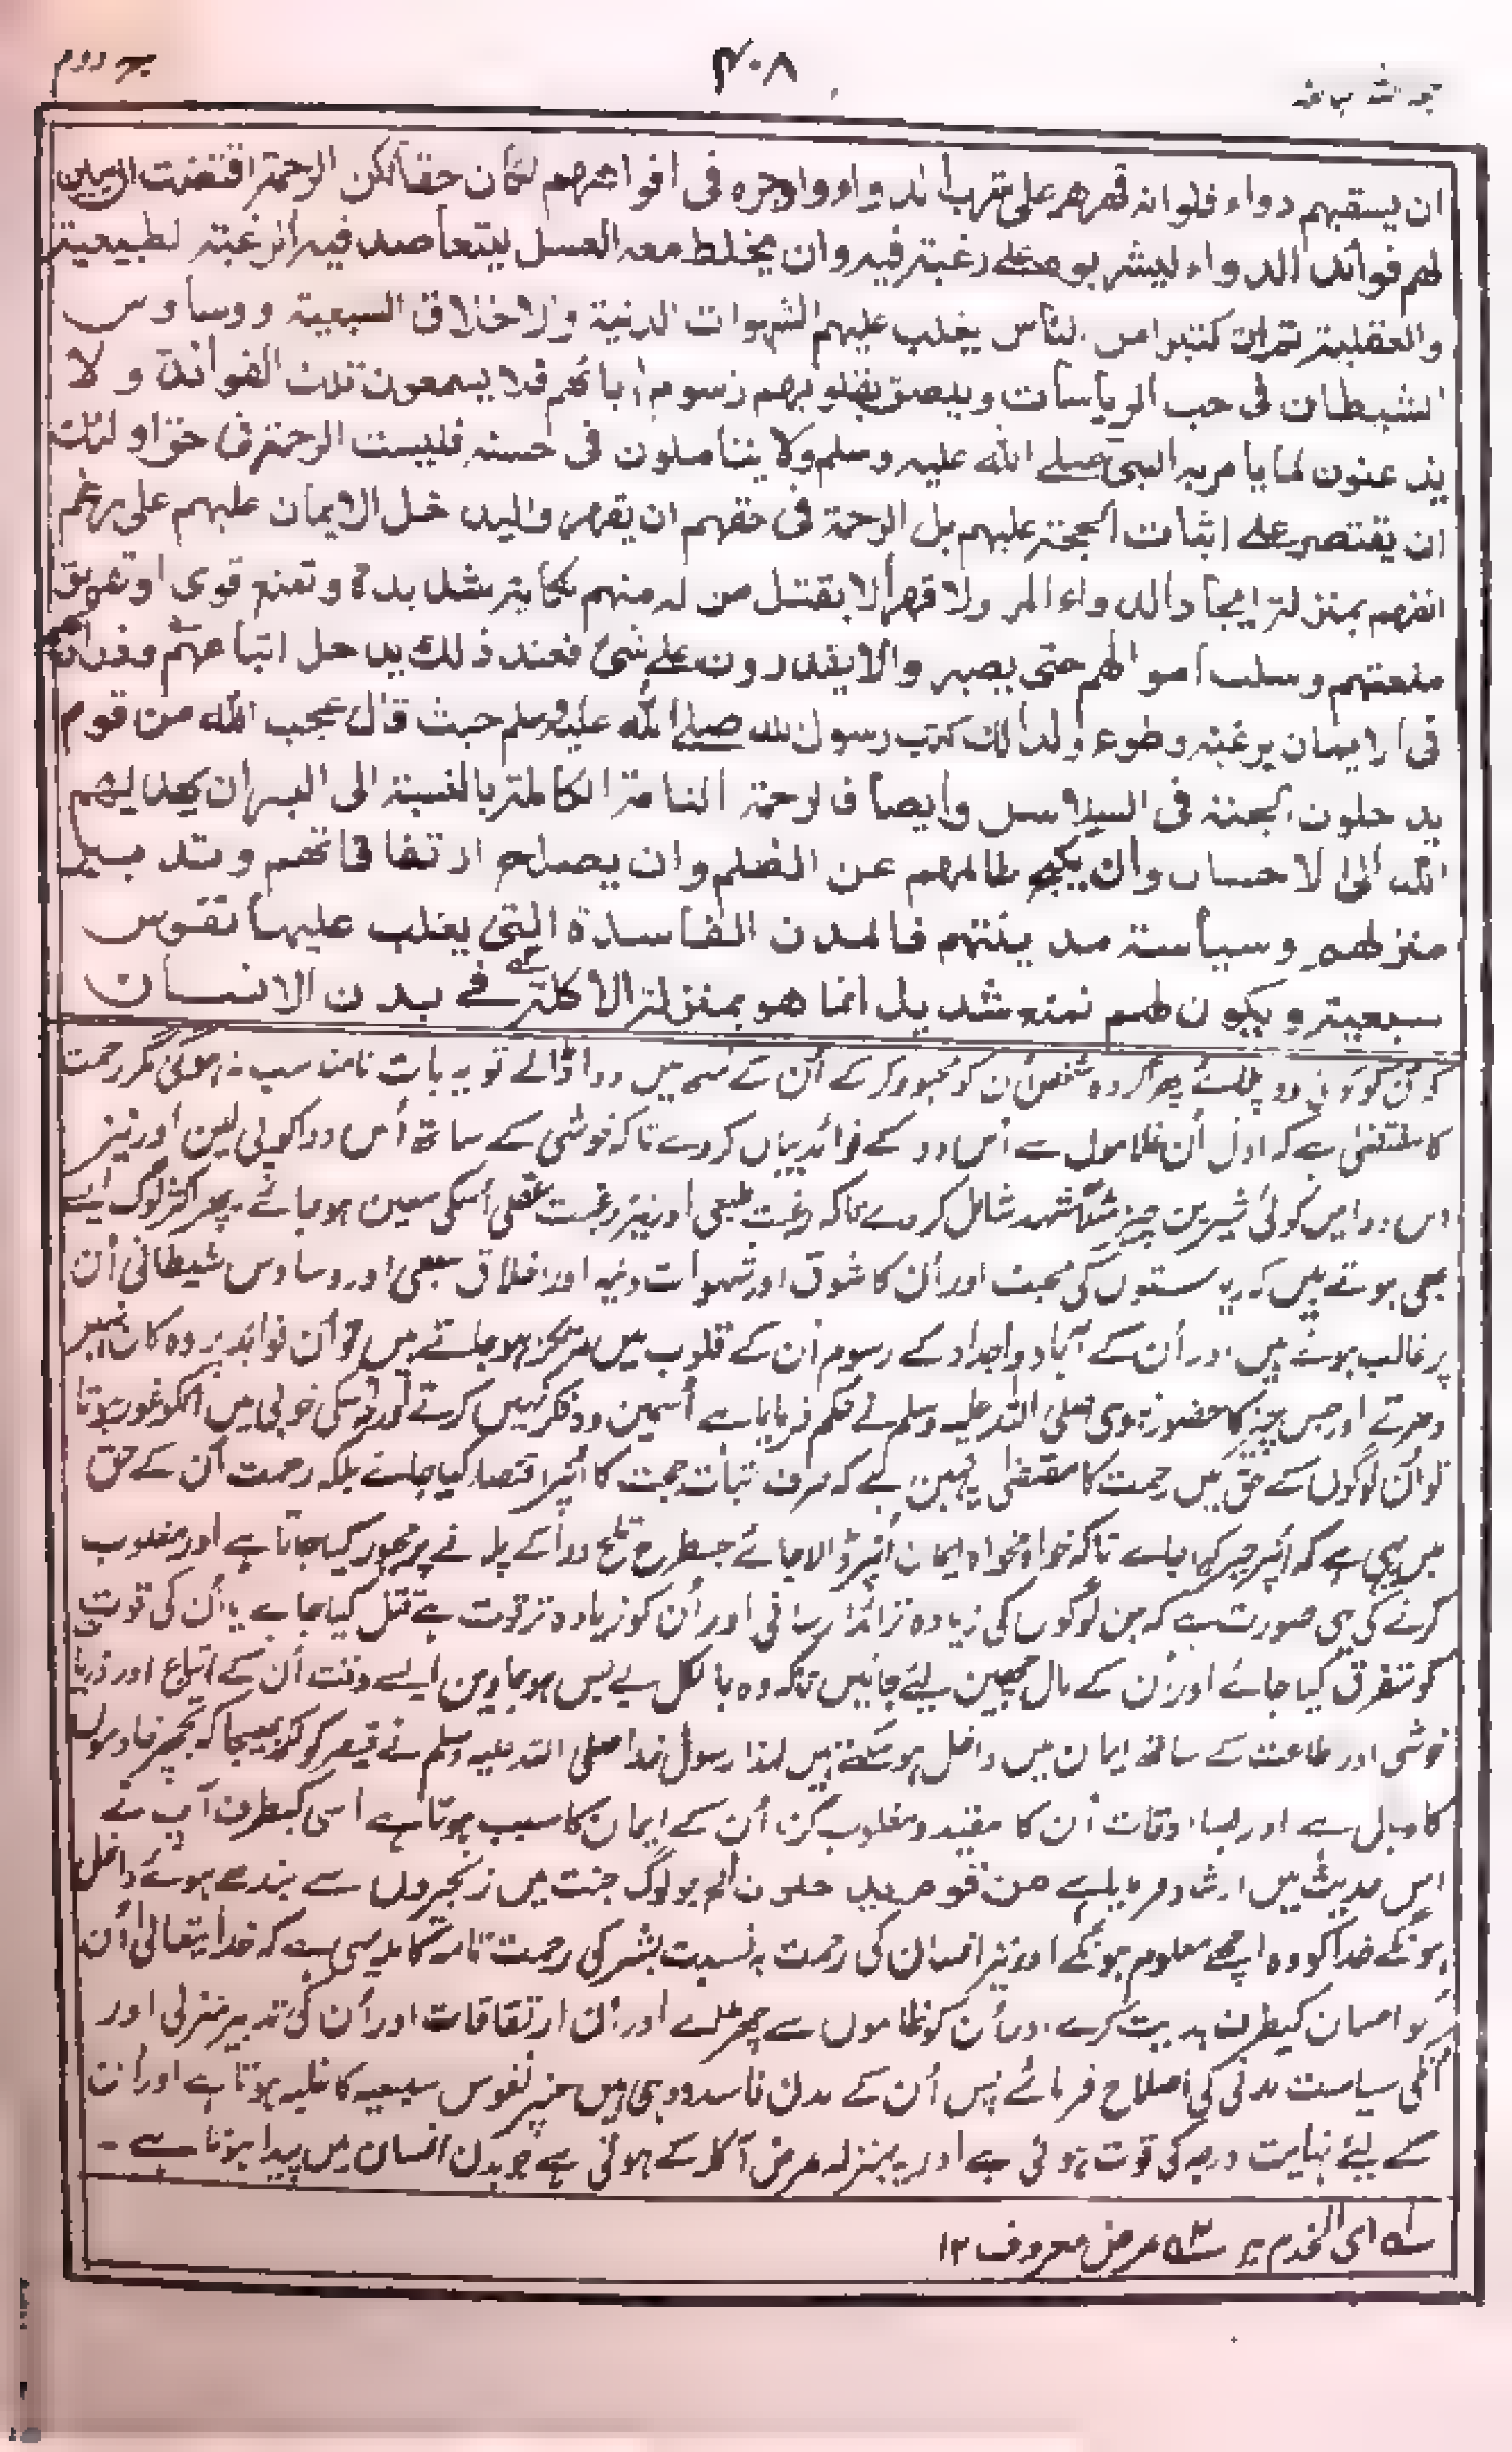 ۴۰۸
ان يسقيهم دواء فلوانه قهرهم على شرب الدواء واوجره فى افواههم لكان حقا لكن الرحمة اقتضت ان يبين
لهم فوائد الدواء ليشربوه على رغبة فيه وان يخلط معه العسل ليتعاضد فيه الرغبة الطبيعية
والعقلية ثم ان كثيرا من الناس يغلب عليهم الشهوات الدنية والاخلاق السبعية ووساوس
الشيطان فى حب الرياسات ويلصق بقلوبهم رسوم اٰبائهم فلا يسمعون تلك الفوائد ولا
يذعنون لما يامر به النبى صلے الله عليه وسلم ولا يتأملون فى حسنه فليست الرحمة فى حق اولئك
ان يقتصر على اثبات الحجة عليهم بل الرحمة فى حقهم ان يقهروا ليدخل الايمان عليهم على رغم
انفهم بمنزلة ايجار الدواء المر ولا قهر الا بقتل من له منهم نكاية شديدة وتمنع قوى او تفريق
منعتهم وسلب اموالهم حتى يصيروا لا يقدرون على شئ فعند ذلك يدخل اتباعهم
فى الايمان برغبة وطوع ولذلك كتب رسول الله صلے الله عليه وسلم حيث قال عجب الله من قوم
يدخلون الجنة فى السلاسل وايضا فالرحمة التامة الكاملة بالنسبة الى البشر ان يهديهم
الله الى الاحسان وان يكبح ظالمهم عن الظلم وان يصلح ارتفاقاتهم وتدبير
منزلهم وسياسة مدينتهم فالمدن الفاسدة التى يغلب عليها نفوس
سبعية ويكون لهم تمنع شديد انما هو بمنزلة الاكلة فے بدن الانسان
کو کوئی دوا پلائے پھر اگر وہ شخص اُن کو مجبور کر کے اُن کے منہ میں دوا ڈالے تو یہ بات نامناسب نہ ہوگی مگر رحمت
کا مقتضیٰ ہے کہ اول اُن غلاموں سے اُس دوا کے فوائد بیان کر دے تاکہ خوشی کے ساتھ اُس دوا کو پی لیں اور نیز
اس دوا میں کوئی شیرین چیز مثلاً شہد شامل کر دے تاکہ رغبت طبعی اور نیز رغبت عقلی اُسکی معین ہو جائے پھر اکثر لوگ ایسے
بھی ہوتے ہیں کہ ریاستوں کی محبت اور اُن کا شوق اور شہوات دنیہ اور اخلاق سبعی اور وساوس شیطانی اُن
پر غالب ہوتے ہیں اور اُن کے آباء و اجداد کے رسوم اُن کے قلوب میں مرتکز ہو جاتے ہیں تو اُن فوائد پر وہ کان نہیں
دھرتے اور جس چیز کا حضور نبوی صلی اللہ علیہ وسلم نے حکم فرمایا ہے اُسمین وہ فکر نہیں کرتے اور نہ اُسکی خوبی میں انکو غور ہوتا
تو اُن لوگوں کے حق میں رحمت کا مقتضیٰ یہ نہین ہے کہ صرف اثبات حجت کا اُنپر اقتصار کیا جائے بلکہ رحمت اُن کے حق
میں یہی ہے کہ اُنپر جبر کیا جاے تاکہ خواہ مخواہ ایمان اُنپر ڈالا جائے جسطرح تلخ دوا کے پلانے پر مجبور کیا جاتا ہے اور مغلوب
کرنے کی یہی صورت ہے کہ جن لوگوں کی زیادہ تر ایذا رسانی اور اُن کو زیادہ تر قوت ہے قتل کیا جاے یا اُن کی قوت
کو متفرق کیا جائے اور اُن کے مال چھین لئے جائیں تاکہ وہ بالکل بے بس ہو جاوین ایسے وقت اُن کے اتباع اور
خوشی اور طاعت کے ساتھ ایمان میں داخل ہو سکتے ہیں لہٰذا رسول خدا صلی اللہ علیہ وسلم نے قیصر کو لکھ بھیجا کہ تجھپر خادموں
کا وبال ہے اور بسا اوقات اُن کا مقید و مغلوب کرنا اُن کے ایمان کا سبب ہوتا ہے اسی کیطرف آپ نے
اس حدیث میں ارشاد فرمایا ہے من قوم يدخلون الخ جو لوگ جنت میں زنجیروں سے بندھے ہوئے داخل
ہونگے خدا کو وہ اچھے معلوم ہونگے اور نیز انسان کی رحمت بہ نسبت بشر کی رحمت تامہ کاملہ یہی ہے کہ خدا یتعالیٰ اُن
کو احسان کیطرف ہدایت کرے اور اُن کو ظالموں سے اور اُن ارتفاقات اور اُن کی تدبیر منزلی اور
اُنکی سیاست مدنی کی اصلاح فرمائے پس اُن کے مدن فاسدہ وہی ہیں جنپر نفوس سبعیہ کا غلبہ ہوتا ہے اور اُن
کے لئے نہایت درجہ کی قوت ہوتی ہے اور یہ بمنزلہ مرض آکلہ کے ہوتی ہے جو بدن انسان میں پیدا ہوتا ہے ۔
ای الخدم مرض معروف ۱۲